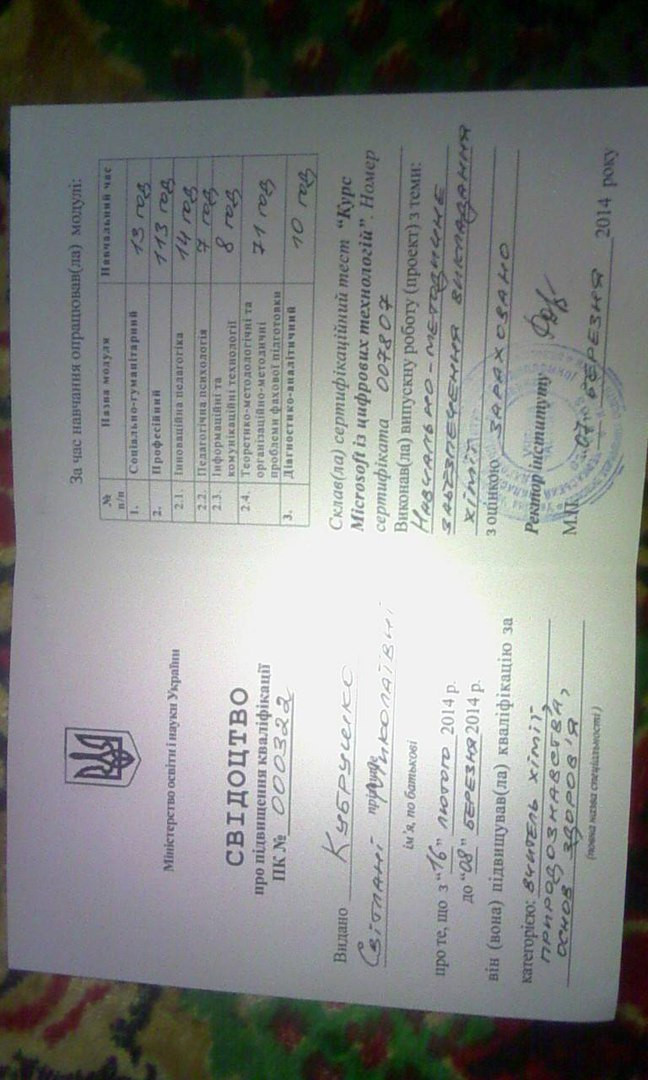 Міністерство освіти і науки України
СВІДОЦТВО
про підвищення кваліфікації
ПК № 000322
Видано Кубрушко
прізвище
Світлані Миколаївні
ім'я, по батькові
про те, що з "16" лютого 2014 р.
до "08" березня 2014 р.
він (вона) підвищував(ла) кваліфікацію за
категорією: вчитель хімії,
природознавства,
основ здоров'я
(повна назва спеціальності)
За час навчання опрацював(ла) модулі:
№ п/п Назва модуля Навчальний час
1. Соціально-гуманітарний 13 год
2. Професійний 113 год
2.1. Інноваційна педагогіка 14 год
2.2. Педагогічна психологія 7 год
2.3. Інформаційні та
комунікаційні технології 8 год
2.4. Теоретико-методологічні та
організаційно-методичні
проблеми фахової підготовки 71 год
3. Діагностико-аналітичний 10 год
Склав(ла) сертифікаційний тест "Курс
Microsoft із цифрових технологій". Номер
сертифіката 007807
Виконав(ла) випускну роботу (проект) з теми:
Навчально-методичне
забезпечення викладання
хімії
з оцінкою зараховано
Ректор інституту
М.П. 07 березня 2014 року